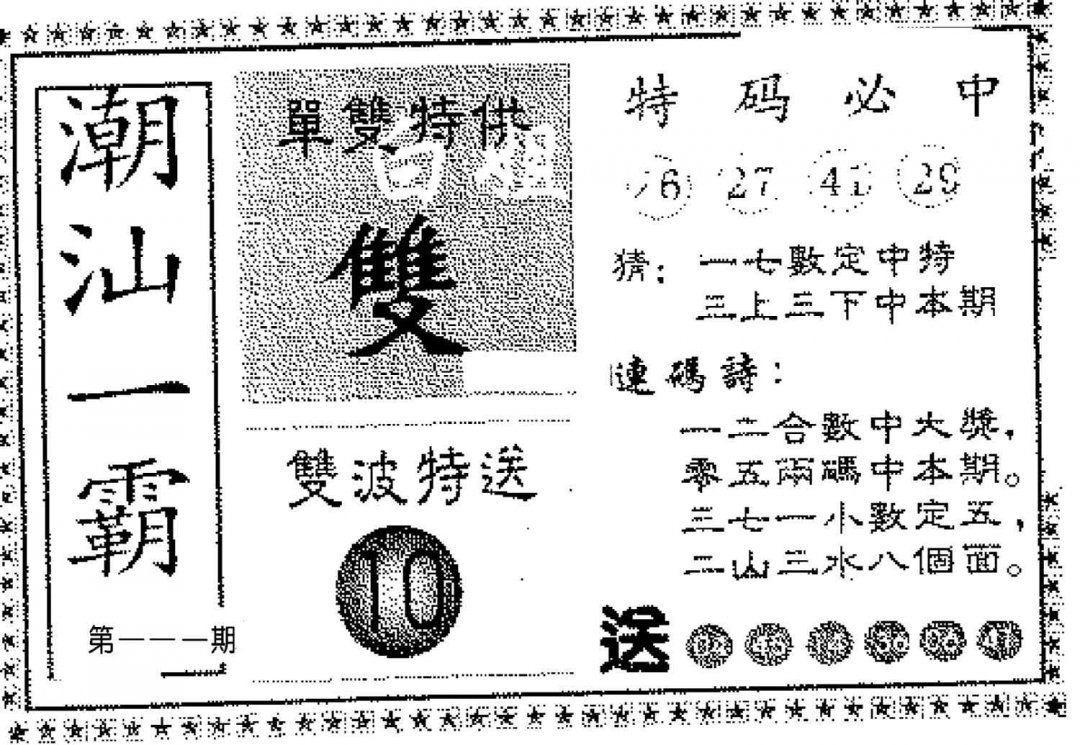 潮汕一霸
第一一一期
單雙特供
白姐
雙
雙波特送
10
特码必中
27 41 29
猜：一七數定中特
三上三下中本期
連碼詩：
一二合數中大獎，
零五兩碼中本期。
三七一小數定五，
二山三水八個面。
送